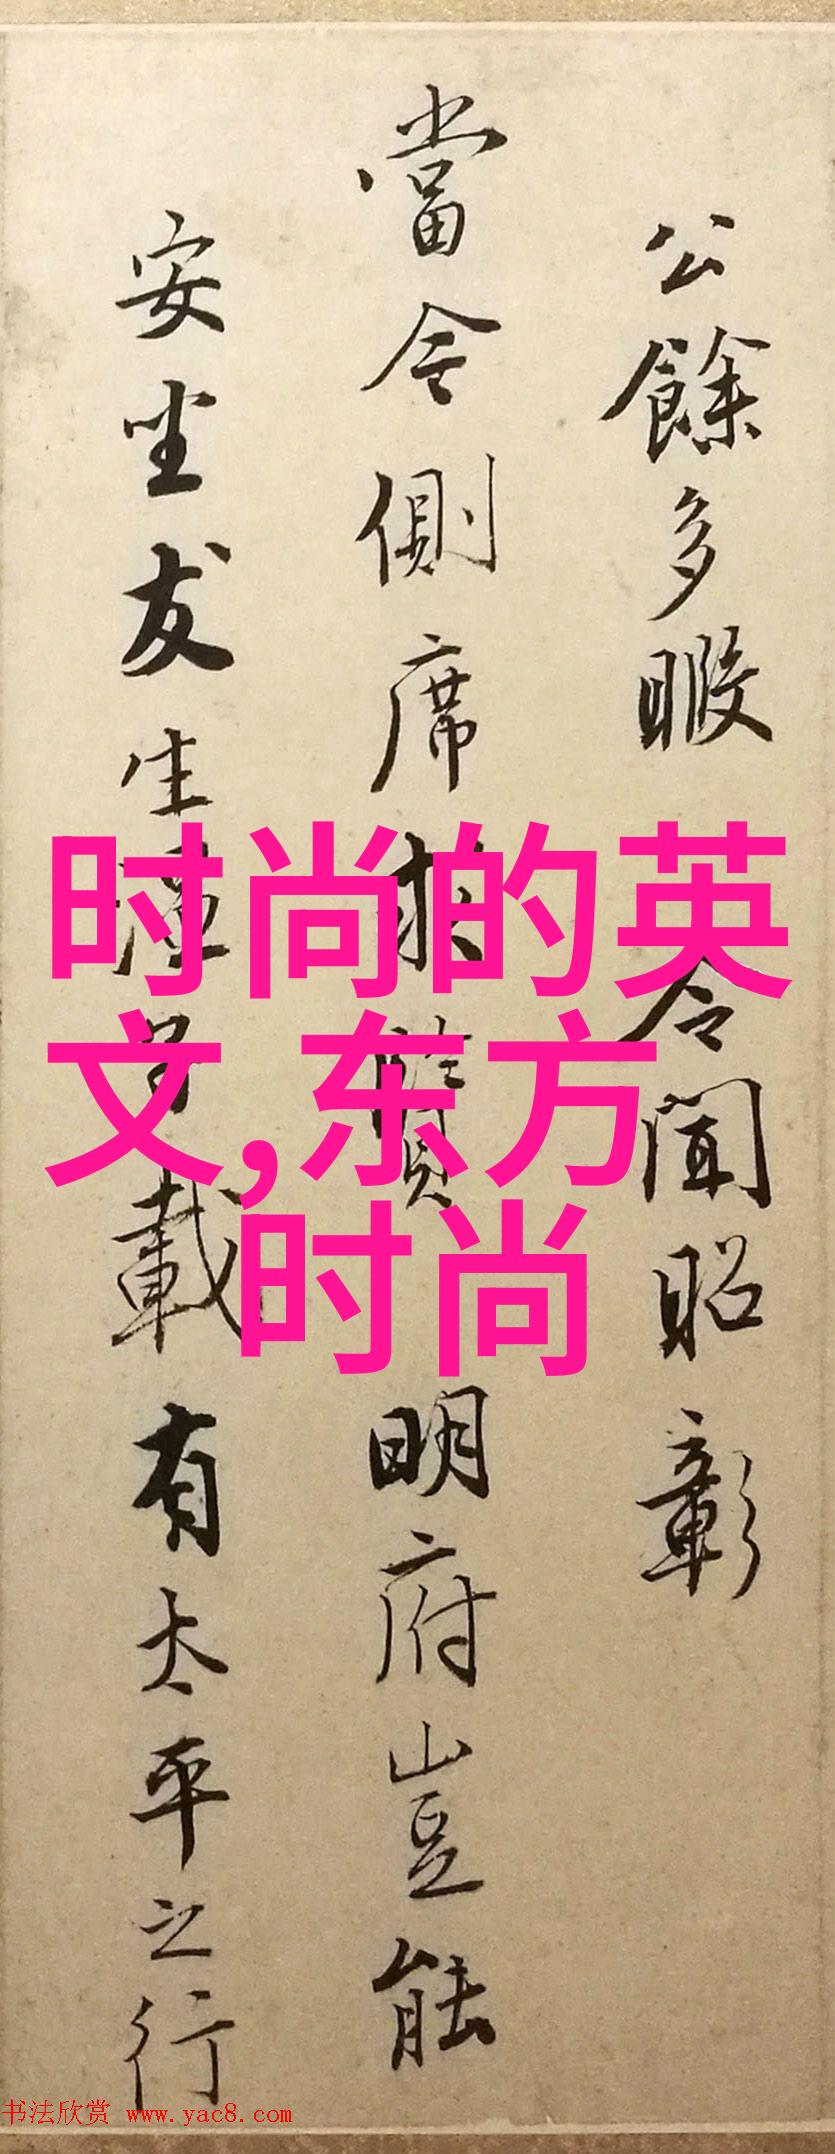 公餘多暇令聞昭彰
當今側席求賢明府豈能
安坐友生載有太平之行
时尚的英
文,东方
时尚
书法欣赏 www.yac8.com